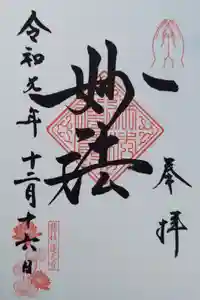 奉拝
妙法
令和元年 十二月十六日